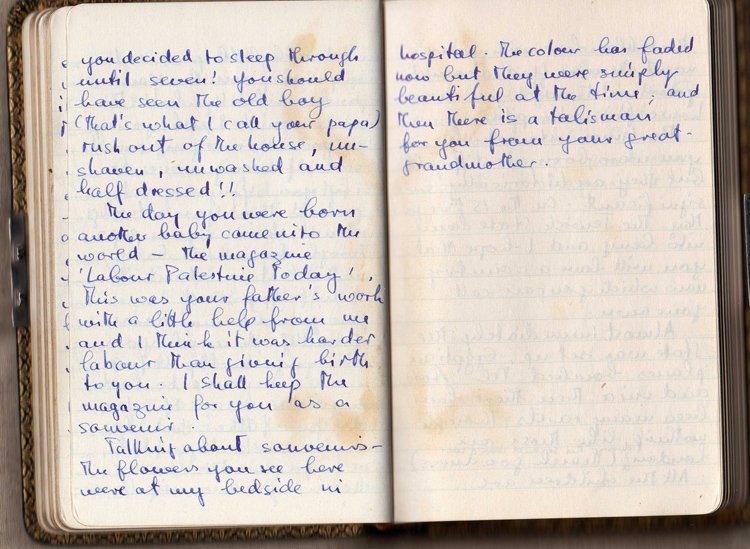 you decided to sleep through
until seven! You should
have seen the old boy
(that's what I call your papa)
rush out of the house, un-
shaven, unwashed and
half dressed!!
The day you were born
another baby came into the
world – the magazine
'Labour Palestine Today'.
This was your father's work
with a little help from me
and I think it was harder
labour than giving birth
to you. I shall keep the
magazine for you as a
souvenir.
Talking about souvenirs –
the flowers you see here
were at my bedside in
hospital. The colour has faded
now but they were simply
beautiful at the time; and
then there is a talisman
for you from your great-
grandmother.